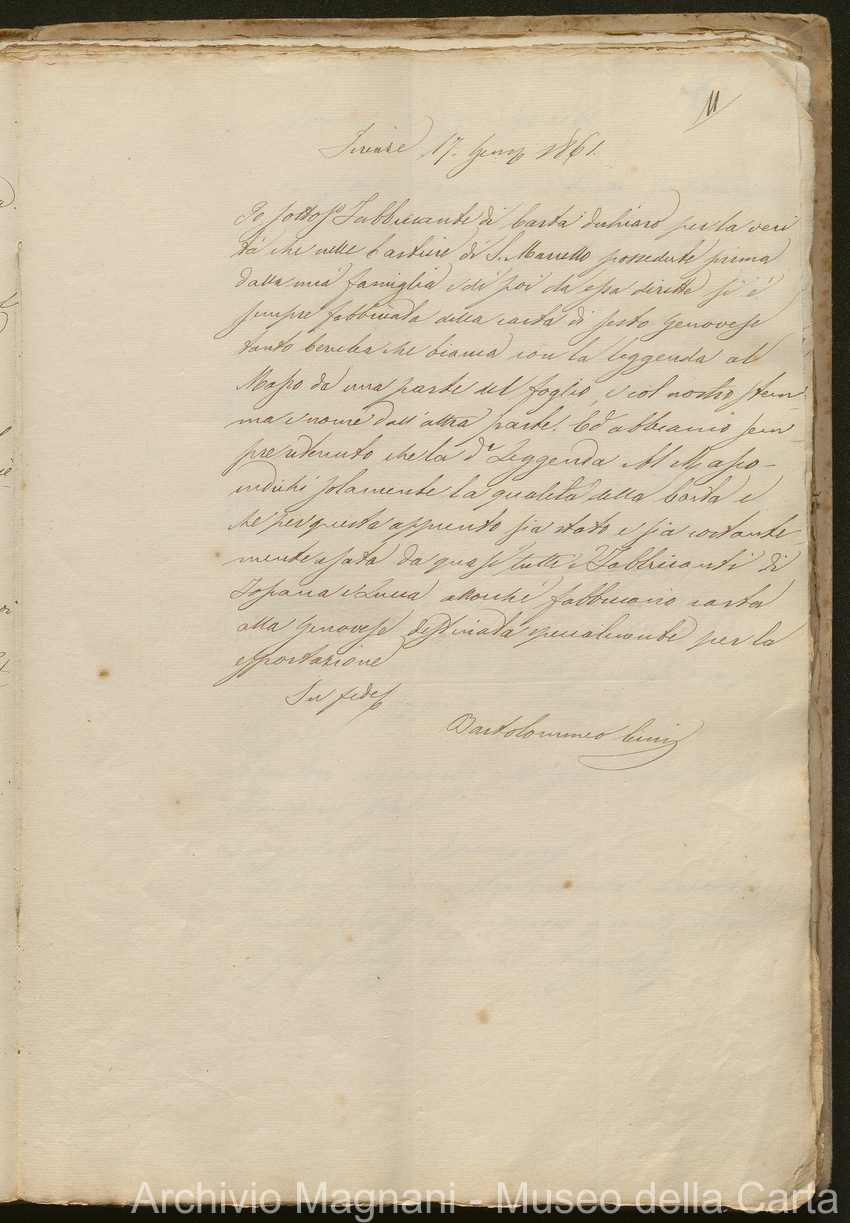 11
Firenze 17. Genn 1861.
Io sottos.o Fabbricante di Carta dichiaro per la veri
tà che nelle Cartiere di S. Marcello possedute prima
dalla mia famiglia e di poi da essa dirette si è
sempre fabbricata della carta di sesto genovese
tanto cerulea che bianca con la leggenda al
Masso da una parte del foglio, e col nostro stem-
ma e nome dall'altra parte. Ed abbiamo sem-
pre ritenuto che la d.a Leggenda Al Masso -
indichi solamente la qualità della Carta e
che per questa appunto sia stato e sia costante-
mente usata da quasi tutti i Fabbricanti di
Toscana e Lucca allorché fabbricano carta
alla genovese destinata specialmente per la
esportazione
In fede
Bartolommeo Cini
Archivio Magnani - Museo della Carta